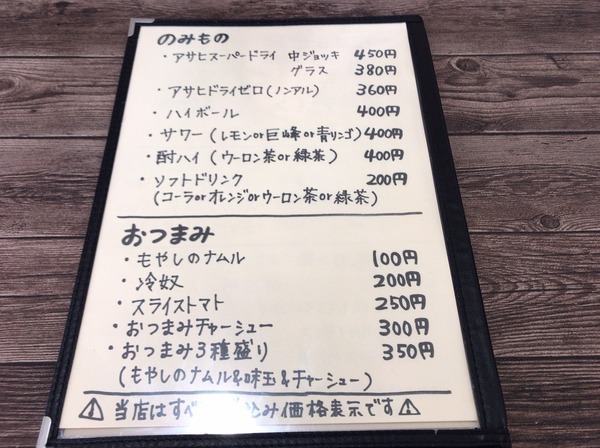 のみもの
・アサヒスーパードライ 中ジョッキ 450円
グラス 380円
・アサヒドライゼロ(ノンアル) 360円
・ハイボール 400円
・サワー(レモンor巨峰or青リンゴ) 400円
・酎ハイ(ウーロン茶or緑茶) 400円
・ソフトドリンク 200円
(コーラorオレンジorウーロン茶or緑茶)
おつまみ
・もやしのナムル 100円
・冷奴 200円
・スライストマト 250円
・おつまみチャーシュー 300円
・おつまみ3種盛り 350円
(もやしのナムル&味玉&チャーシュー)
⚠当店はすべ込み価格表示です⚠